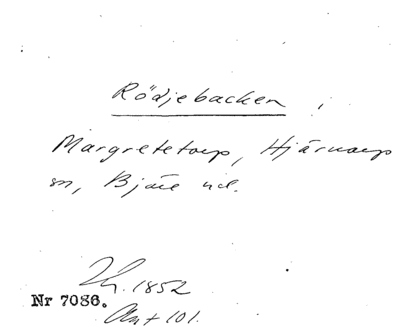 Rödjebacken,
Margretetorp, Hjärnarp
sn, Bjäre hd.
Th. 1852
Nr 7086.
Ant 101.